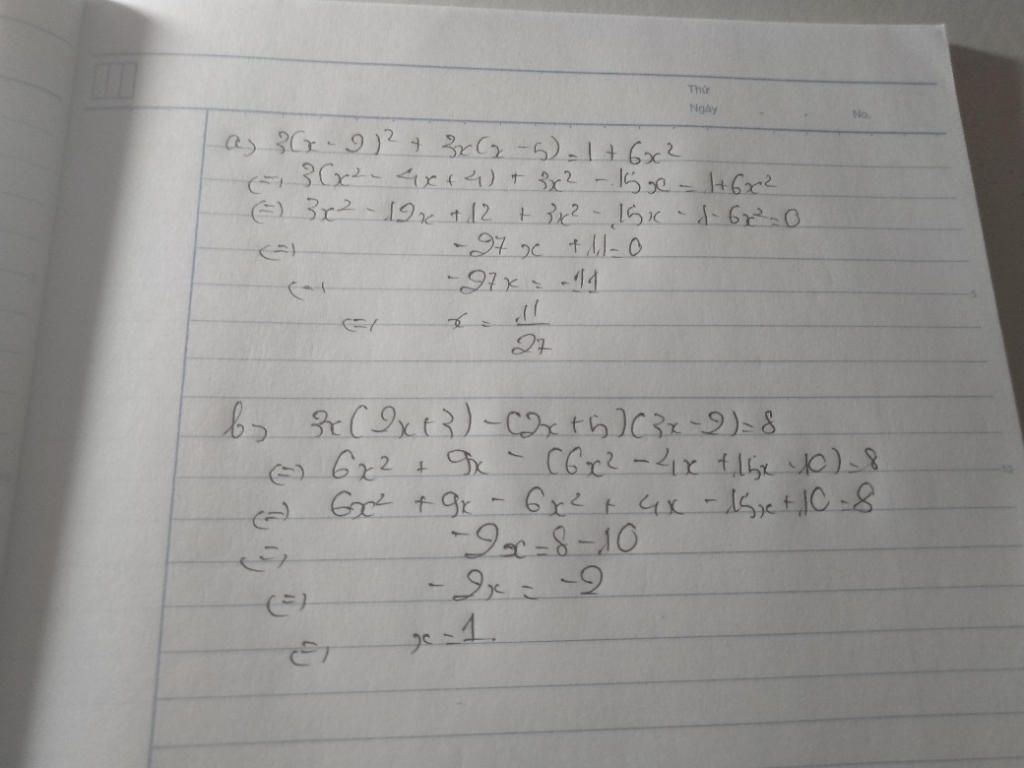 Thứ
Ngày
No.
a) 3(x - 2)² + 3x(x - 5) = 1 + 6x²
(=) 3(x² - 4x + 4) + 3x² - 15x = 1 + 6x²
(=) 3x² - 12x + 12 + 3x² - 15x - 1 - 6x² = 0
(=) -27x + 11 = 0
(=) -27x = -11
(=) x = 11/27
b) 3x(2x+3) - (2x+5)(3x-2) = 8
(=) 6x² + 9x - (6x² - 4x + 15x - 10) = 8
(=) 6x² + 9x - 6x² + 4x - 15x + 10 = 8
(=) -2x = 8 - 10
(=) -2x = -2
(=) x = 1.